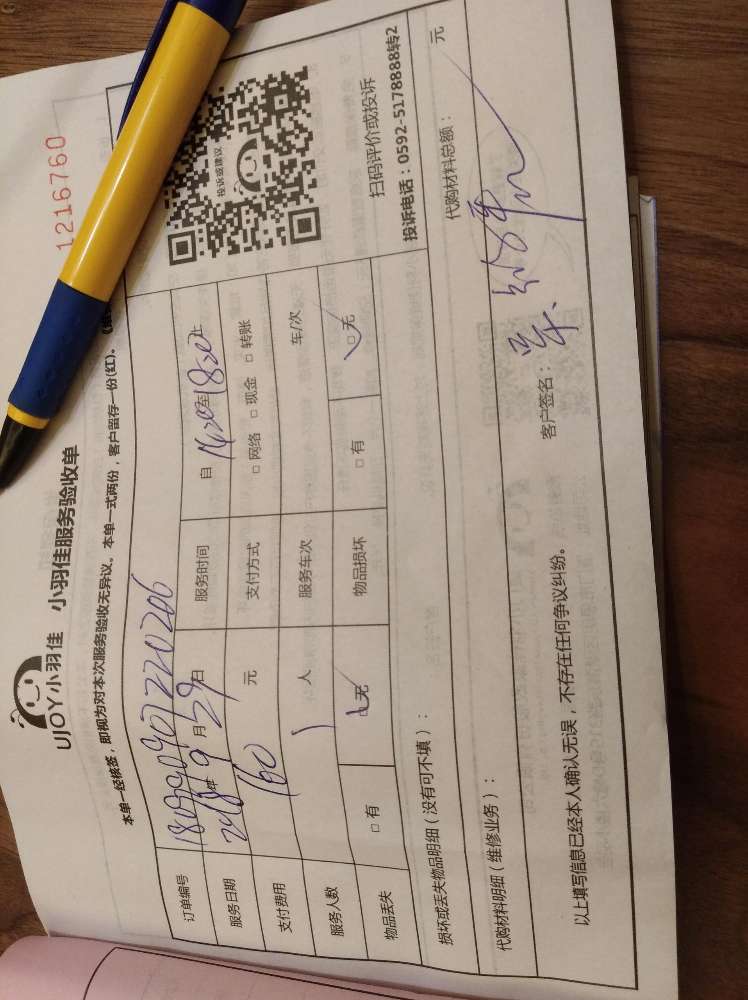 1216760
UJOY小羽佳 小羽佳服务验收单
本单一经核签，即视为对本次服务验收无异议。本单一式两份，客户留存一份(红)。
订单编号
服务日期 2018年9月29日 服务时间 自1620至1820止
支付费用 160元 支付方式 □ 网络 □ 现金 □ 转账
服务人数 1人 服务车次 车/次
物品丢失 □ 有 □ 无 物品损坏 □ 有 □ 无
投诉或建议
扫码评价或投诉
投诉电话：0592-5178888转2
损坏或丢失物品明细（没有可不填）：
代购材料明细（维修业务）： 代购材料总额： 元
以上填写信息已经本人确认无误，不存在任何争议纠纷。 客户签名：